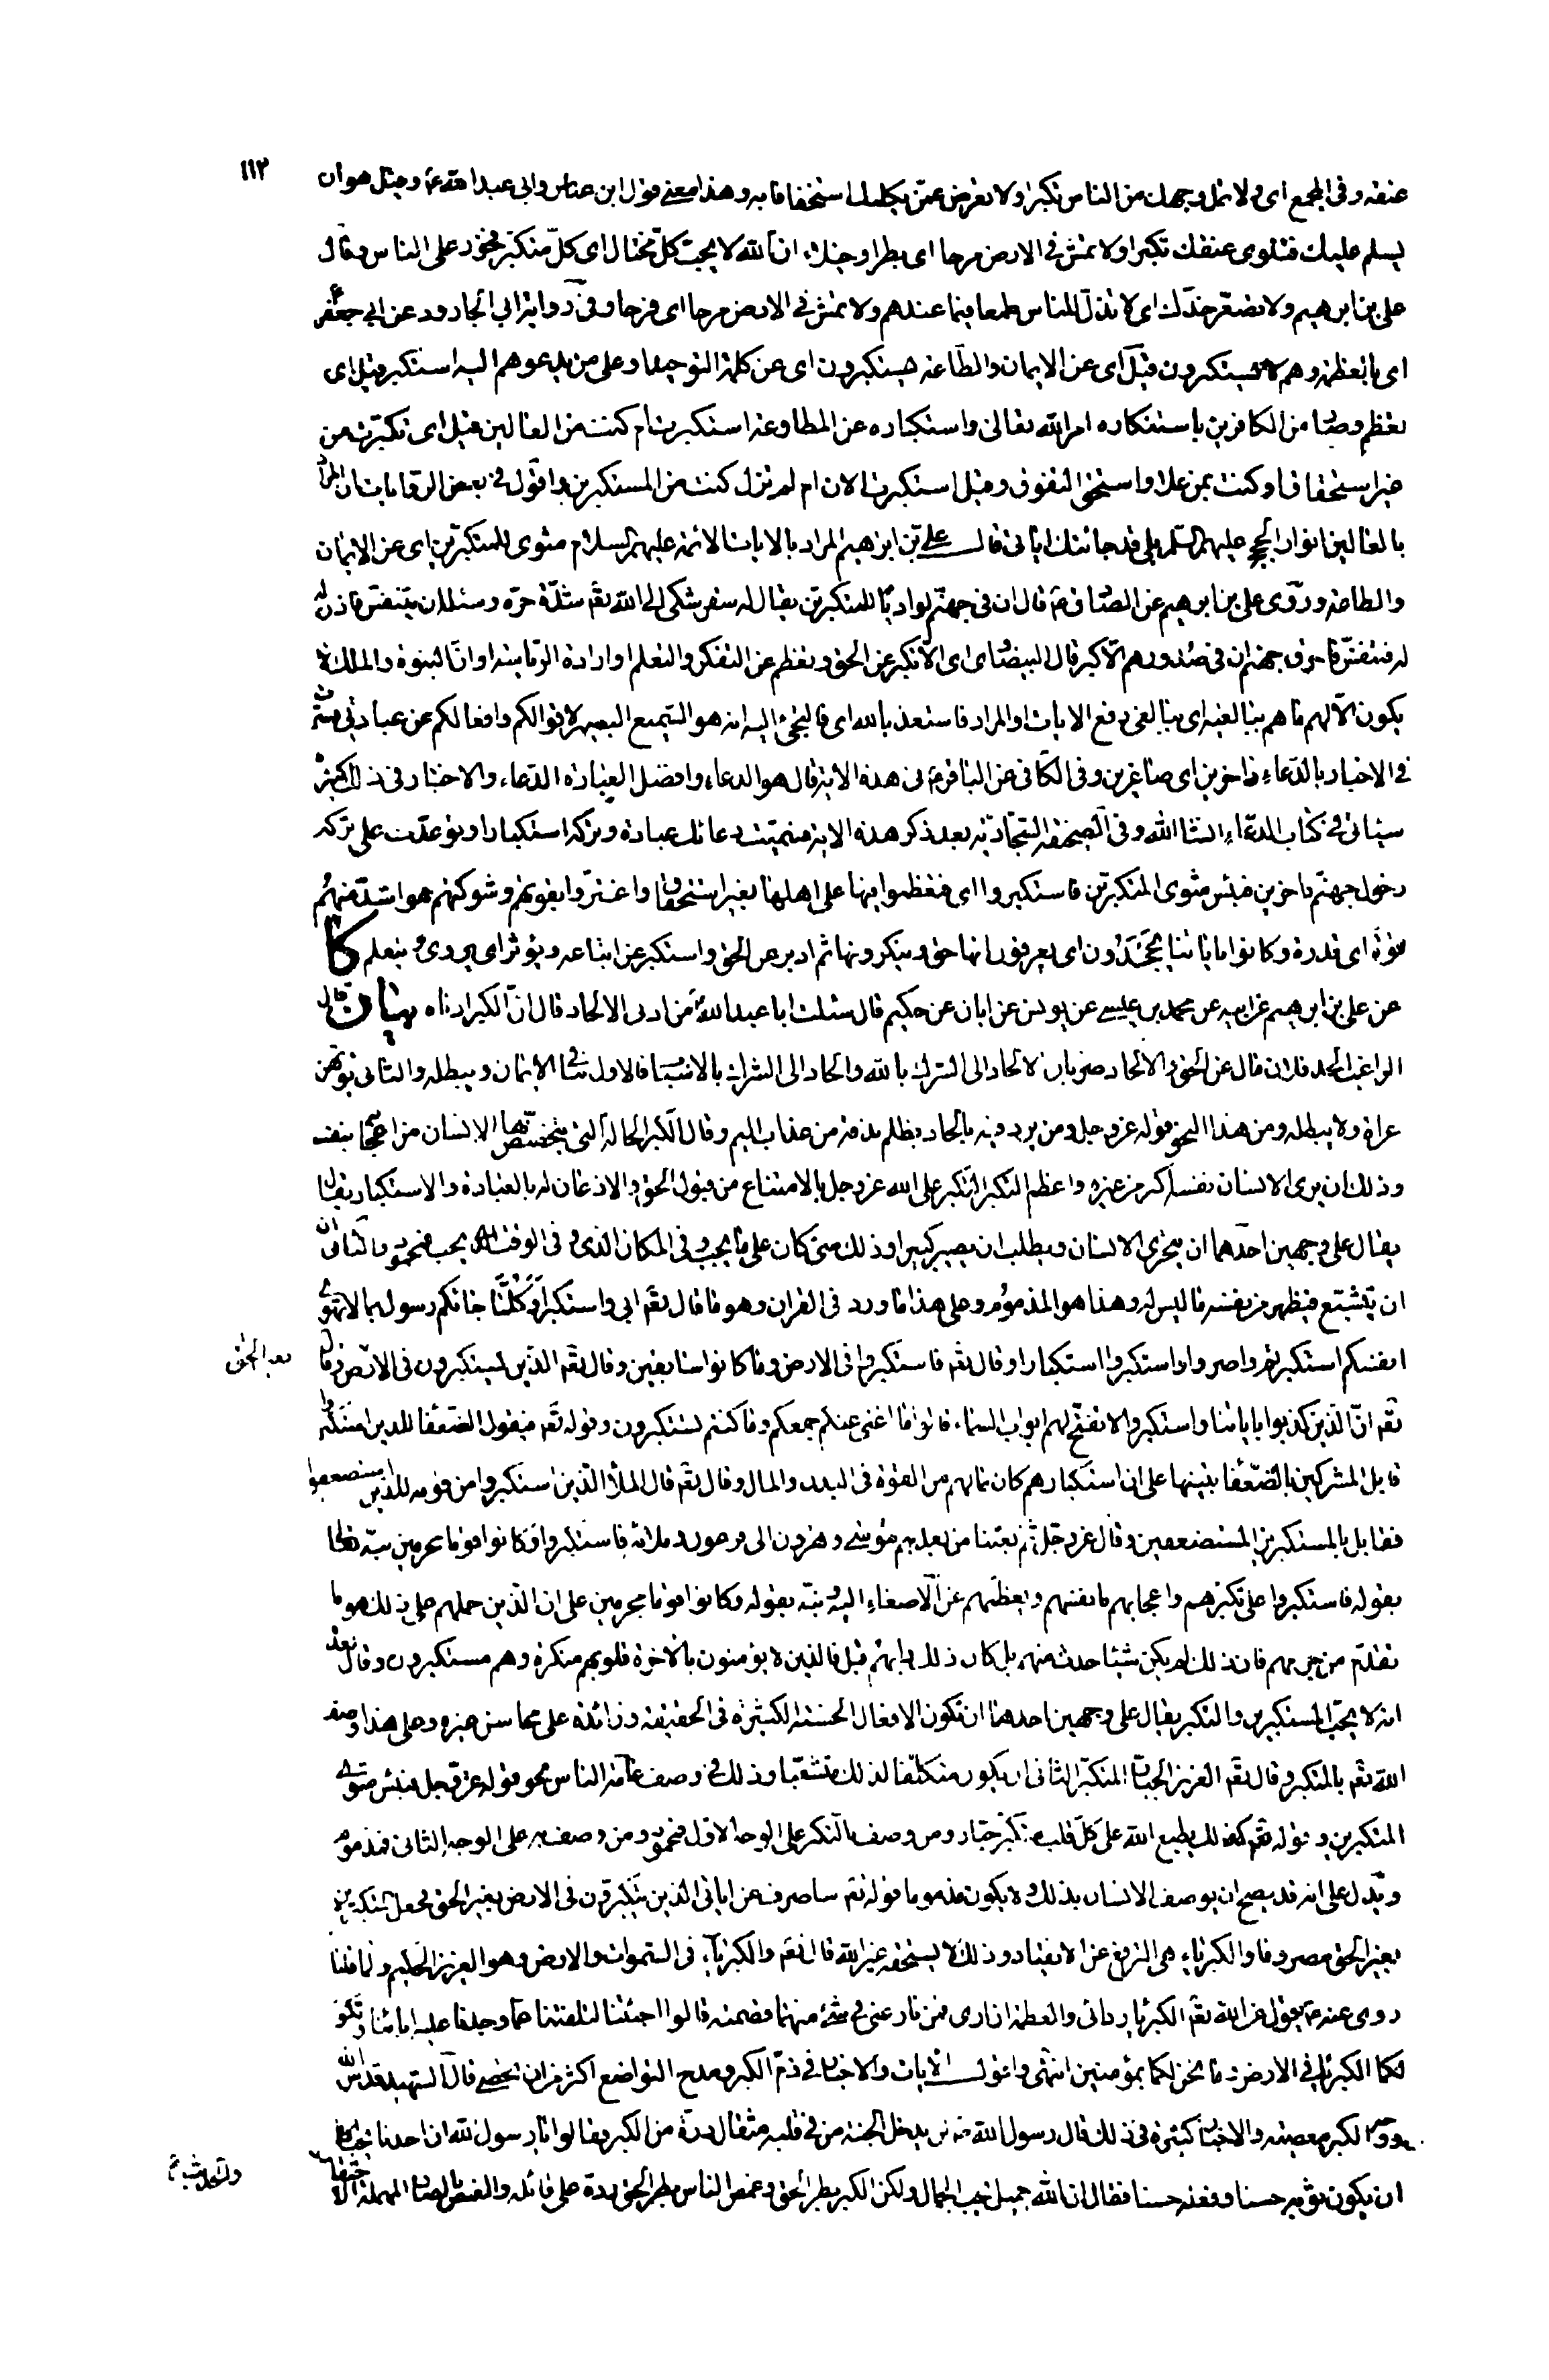 ١١٢
عنقه وفي المجمع اى ولا تمل وجهك من الناس تكبرا ولا تعرض عمن يكلمك استخفافا به وهذا معنى قول ابن عباس وابي عبد الله ع وقيل هو ان
يسلم عليك فتلوى عنقك تكبرا ولا تمش في الارض مرحا اى بطرا وخيلاء ان الله لا يحب كل مختال اى كل متكبر فخور على الناس وقال
على بن ابرهيم ولا تصعر خدك اى لا تذل للناس طمعا فيما عندهم ولا تمش في الارض مرحا اى فرحا وفي رواية ابي الجارود عن ابي جعفر ع
اى بالعظمة وهم لا يستكبرون قيل اى عن الايمان والطاعة يستكبرون اى عن كلمة التوحيد او على من يدعوهم اليه استكبر قيل اى
تعظم وصار من الكافرين باستنكاره امر الله تعالى واستكباره عن المطاوعة استكبرت ام كنت من العالين قيل اى تكبرت من
غير استحقاق او كنت ممن علا واستحق التفوق وقيل استكبرت الان ام لم تزل كنت من المستكبرين واقول في بعض الروايات ان المراد
بالعالين انوار الحجج عليهم السلم بلى قد جائتك اياتي قال على بن ابرهيم المراد بالايات الائمة عليهم السلام مثوى للمتكبرين اى عن الايمان
والطاعة وروى على بن ابرهيم عن الصادق ع قال ان في جهنم لواديا للمتكبرين يقال له سقر شكى الى الله تعم شدة حره وسئله ان يتنفس فاذن له
له فتنفس فاحرق جهنم ان في صدورهم الا كبر قال البيضاوى اى الا تكبر عن الحق وتعظم عن التفكر والتعلم او ارادة الرياسة او ان النبوة والملك لا
يكون الا لهم ما هم ببالغيه اى ببالغى دفع الايات او المراد فاستعذ بالله اى فالتجئ اليه انه هو السميع البصير لاقوالكم وافعالكم عن عبادتي فسرت
في الاخبار بالدعاء داخرين اى صاغرين وفي الكافي عن الباقر ع في هذه الاية قال هو الدعاء وافضل العبادة الدعاء والاخبار في ذلك كثيرة
سياتي في كتاب الدعاء انشا الله وفي الصحيفة السجادية بعد ذكر هذه الاية فسميت دعائك عبادة وتركه استكبارا وتوعدت على تركه
دخول جهنم داخرين فبئس مثوى المتكبرين فاستكبروا اى فتعظموا فيها على اهلها بغير استحقاق واغتروا بقوتهم وشوكتهم هو اشد منهم
قوة اى قدرة وكانوا باياتنا يجحدون اى يعرفون انها حق وينكرونها ثم ادبر عن الحق واستكبر عن اتباعه ويؤثر اى يروى ويتعلم كا
عن على بن ابرهيم عن ابيه عن محمد بن عيسى عن يونس عن ابان عن حكيم قال سئلت ابا عبد الله ع عن ادنى الالحاد قال ان الكبر ادناه بيان قال
الراغب الحد فلان مال عن الحق والالحاد ضربان الحاد الى الشرك بالله والحاد الى الشرك بالاسباب فالاول ينافي الايمان ويبطله والثاني يوهن
عراه ولا يبطله ومن هذا النحو قوله عز وجل ومن يرد فيه بالحاد بظلم نذقه من عذاب اليم وقال الكبر الحالة التي يتخصص بها الانسان من اعجابه بنفسه
وذلك ان يرى الانسان نفسه اكبر من غيره واعظم التكبر التكبر على الله عز وجل بالامتناع من قبول الحق والاذعان له بالعبادة والاستكبار يقال
يقال على وجهين احدهما ان يتحرى الانسان ويطلب ان يصير كبيرا وذلك متى كان على ما يجب وفي المكان الذى وفي الوقت الذى يجب فمحمود والثاني
ان يتشبع فيظهر من نفسه ما ليس له وهذا هو المذموم وعلى هذا ما ورد في القران وهو ما قال تعم ابى واستكبر افكلما جائكم رسول بما لا تهوى
انفسكم استكبرتم واصروا واستكبروا استكبارا وقال تعم فاستكبروا في الارض وما كانوا سابقين وقال تعم الذين يستكبرون في الارض وقال
بغير الحق
تعم ان الذين كذبوا باياتنا واستكبروا لا تفتح لهم ابواب السماء قالوا ما اغنى عنكم جمعكم وما كنتم تستكبرون وقوله تعم فيقول الضعفا للذين استكبروا
قابل المستكبرين بالضعفا تنبيها على ان استكبارهم كان بما لهم من القوة في البدن والمال وقال تعم قال الملأ الذين استكبروا من قومه للذين استضعفوا
فقابل بالمستكبرين المستضعفين وقال عز وجل ثم بعثنا من بعدهم موسى وهرون الى فرعون وملائه فاستكبروا وكانوا قوما مجرمين نبه تعالى
بقوله فاستكبروا على تكبرهم واعجابهم بانفسهم وتعظمهم عن الاصغاء اليه ونبه بقوله وكانوا قوما مجرمين على ان الذين حملهم على ذلك هو ما
تقدم من جرمهم فان ذلك لم يكن شيئا حدث منهم بل كان ذلك دابهم قبل فالذين لا يؤمنون بالاخرة قلوبهم منكرة وهم مستكبرون وقال بعده
انه لا يحب المستكبرين والتكبر يقال على وجهين احدهما ان تكون الافعال الحسنة الكثيرة في الحقيقة وزائدة على محاسن غيره وعلى هذا وصف
الله تعم بالمتكبر وقال تعم العزيز الجبار المتكبر الثاني ان يكون متكلفا لذلك متشبعا وذلك في وصف عامة الناس نحو قوله عز وجل فبئس مثوى
المتكبرين وقوله تعم كذلك يطبع الله على كل قلب متكبر جبار ومن وصف بالتكبر على الوجه الاول فمحمود ومن وصف به على الوجه الثاني فمذموم
ويدل على انه قد يصح ان يوصف الانسان بذلك ولا يكون مذموما قوله تعم ساصرف عن اياتي الذين يتكبرون في الارض بغير الحق فجعل المتكبرين
بغير الحق مصروفا والكبرياء هى الترفع عن الانقياد وذلك لا يستحقه غير الله قال تعم وله الكبرياء في السموات والارض وهو العزيز الحكيم ولما قلنا
روى عنه ص يقول عن الله تعم الكبرياء ردائي والعظمة ازارى فمن نازعني في شئ منهما قصمته قالوا اجئتنا لتلفتنا عما وجدنا عليه ابائنا وتكون
لكما الكبرياء في الارض وما نحن لكما بمؤمنين انتهى واقول الايات والاخبار في ذم الكبر ومدح التواضع اكثر من ان تحصى قال الشهيد قدس الله
روحه الكبر معصية والاخبار كثيرة في ذلك قال رسول الله ص لن يدخل الجنة من في قلبه مثقال ذرة من الكبر فقالوا يا رسول الله ان احدنا يحب
ان يكون ثوبه حسنا وفعله حسنا فقال ان الله جميل يحب الجمال ولكن الكبر بطر الحق وغمص الناس بطر الحق رده على قائله والغمص بالصاد المهملة الا
حتقار